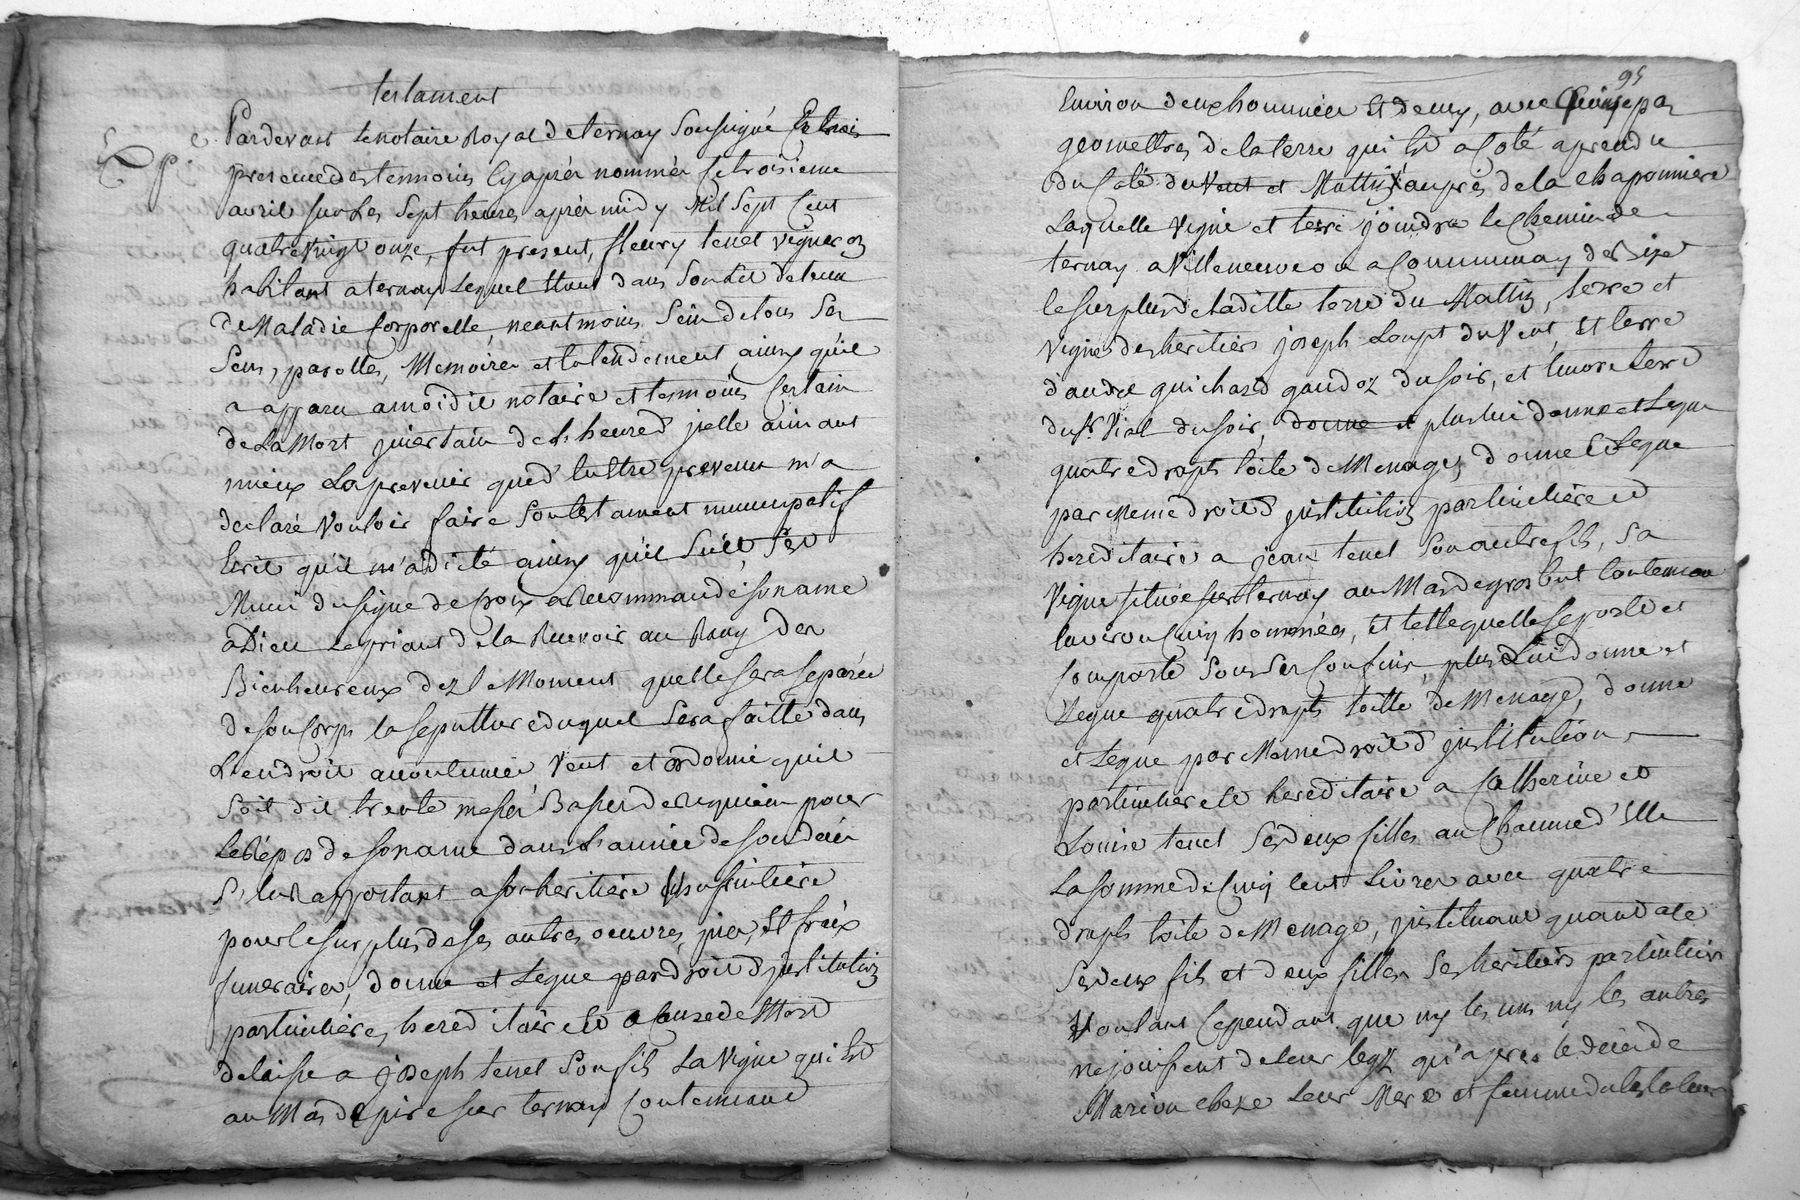 testament
Pardevant le notaire Royal de ternay Soussigné Et En
presence des temoins Cy aprés nommés Ce troisieme
avril sur les Sept heures aprés midy Mil Sept Cent
quatre vingt onze, fut present, fleury tenet vigneron
habitant a ternay Lequel Etant dans Son Lit detenu
de Maladie Corporelle, neantmoins Sein de tous Ses
Sens, parolles, Memoires et Entendement ainsy qu'il
a apparu a moidit notaire et temoins Certain
de La Mort jncertain de L'heure d'jcelle aimant
mieux La prevenir que d'En Etre prevenu m'a
declaré Vouloir faire Son testament nuncupatif
Ecrit qu'il m'a dicté ainsy qu'il Suit, s'Est
Muni du signe de Croix a Recommandé son ame
a Dieu Le priant de la Recevoir au Rang des
Bienheureux dez le Moment quelle sera separée
de son Corps la sepulture duquel Sera faitte dans
L'endroit accoutumée Veut et ordonne quil
Soit dit trente messes Basses de Requiem pour
Le Répos de son ame dans L'année de son décés
S'En Rapportant a son heritiere
pour le surplus de ses autres oeuvres, pies, Et fraix
funeraires, donne et Legue par droit d'jnstitution
particuliere, hereditaire Et a Cause de Mort
delaisse a joseph tenet Son fils La Vigne qui Est
au Mas de pire sur ternay Contenant
95
Environ deux hommées Et demy, avec
geomettres de la terre qui Est a Coté a prendre
du Coté du Vent et Mattin aupres de la Chaponniere
Laquelle Vigne et terre joindra le Chemin de
ternay a Villeneuve ou a Communay de Bize
le surplus de laditte terre du Mattin, terre et
Vignes des heritiers joseph Loupt du Vent, Et terre
d'andre guichard gandoz du soir, et Encore terre
du Sr. Vial du soir, donne et plus lui donne et Legue
quatre draps toile de Menage, donne Et Legue
par Meme droit d'jnstitution particuliere Et
hereditaire a jean tenet Son autre fils, Sa
Vigne situeé sur ternay au Mas de grosbut Contenant
Environ Cinq hommées, Et telle quelle se porte et
Comporte Sous Ses Confins, plus Lui donne et
Legue quatre draps toille de Menage, donne
et Legue par Meme droit d'jnstitution
particuliere Et hereditaire a Catherine et
Louise tenet Ses deux filles au Chacune d'Elle
La somme de Cinq Cent Livres avec quatre
draps toile de Menage, jnstituant quand a Ce
Ses deux fils et deux filles Ses heritiers particuliers
Voulant Cependant que ny les uns ny les autres
ne jouissent de Leur legz qu'apres le décés de
Marion Leur Mere et femme du testateur